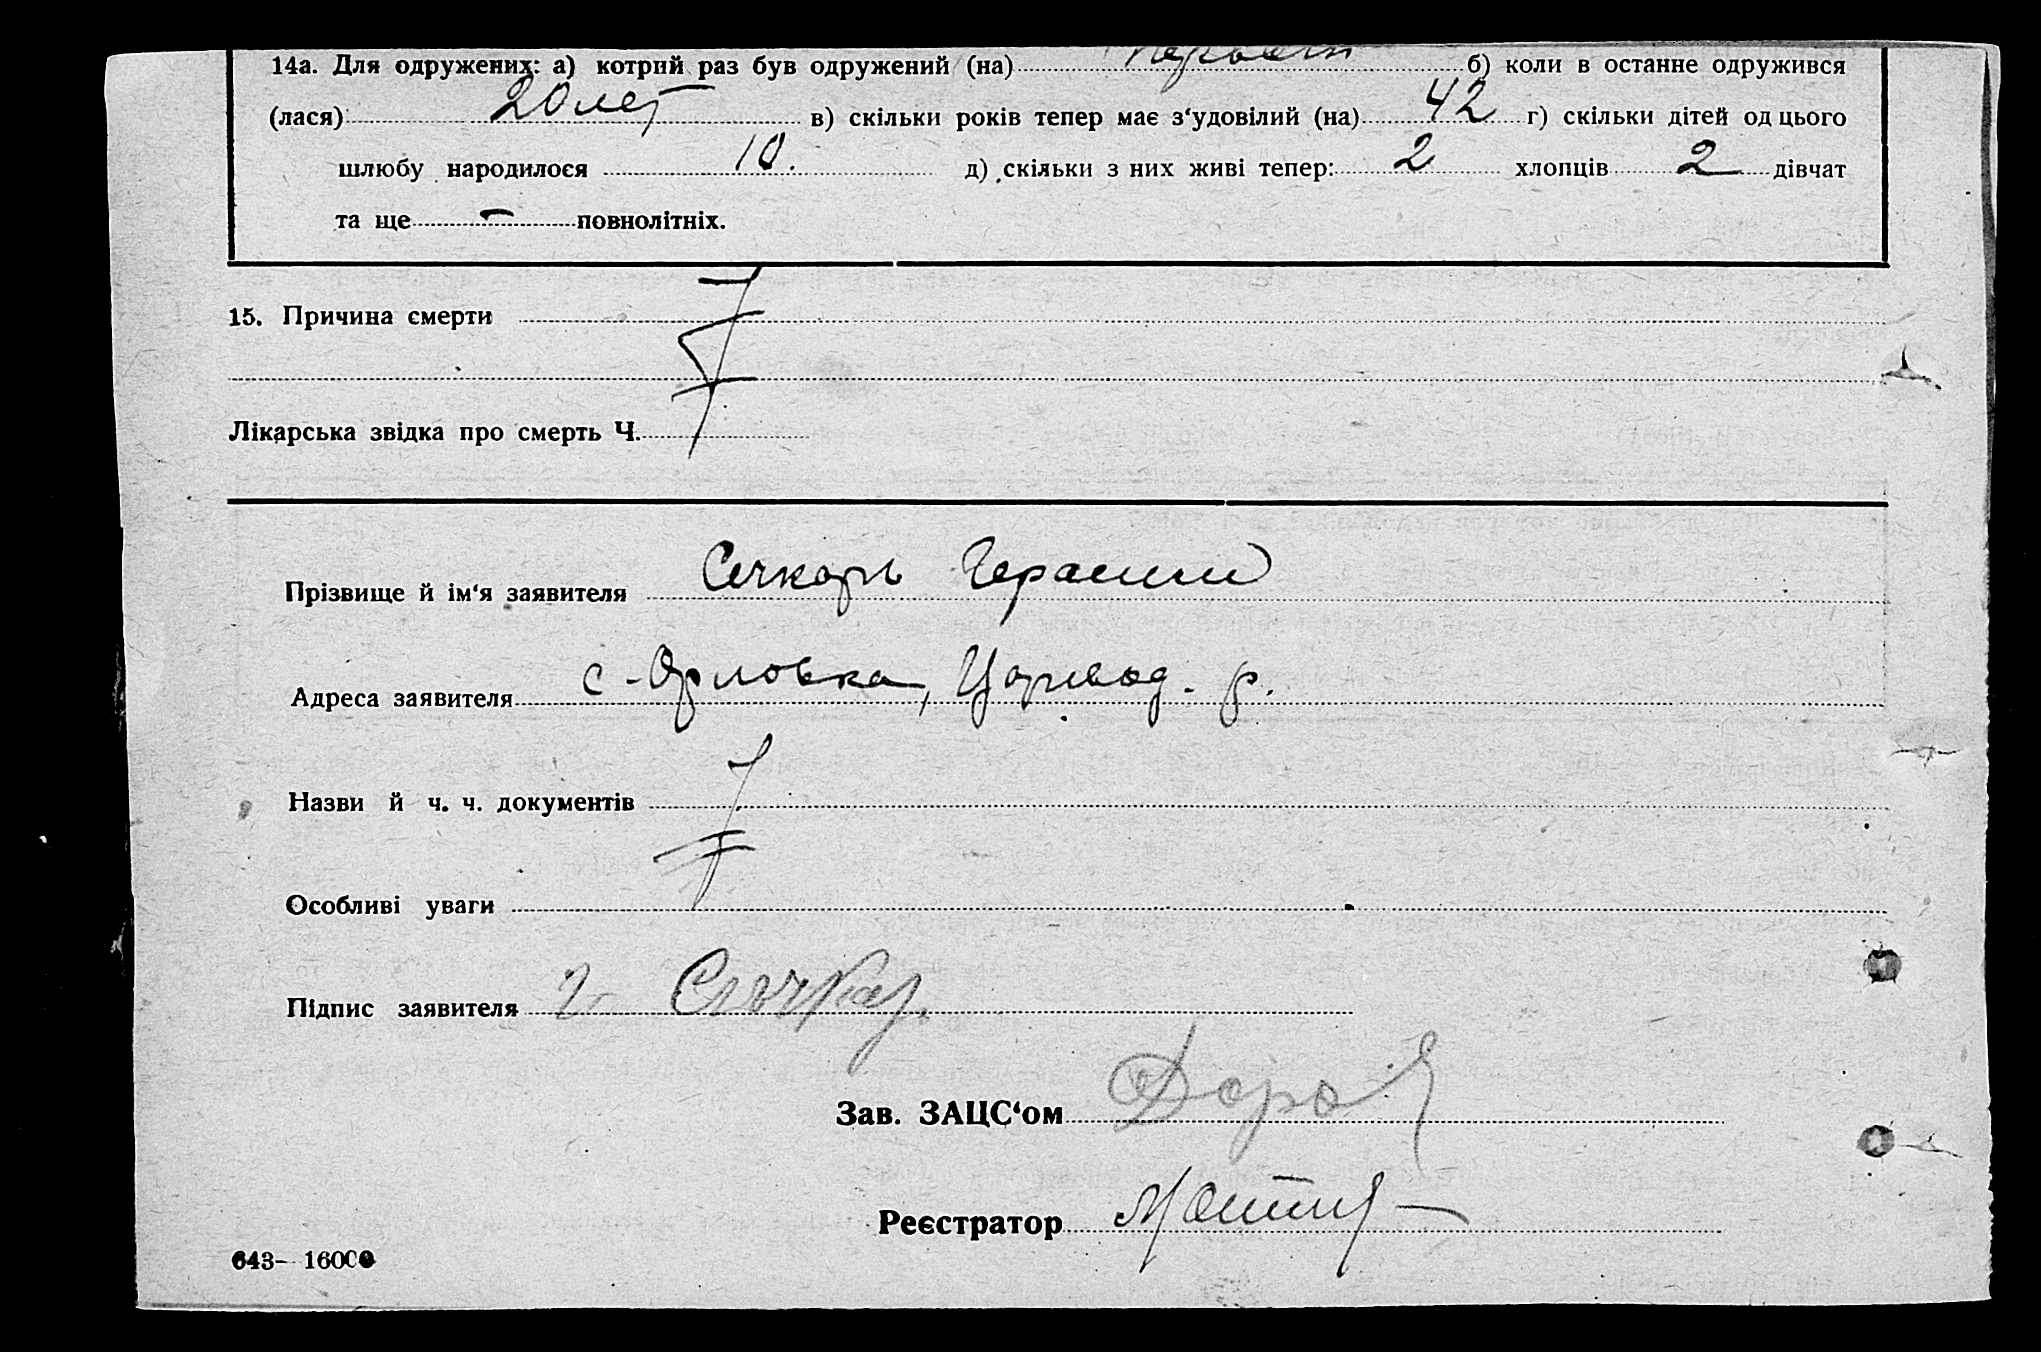 14а. Для одружених: а) котрий раз був одружений (на) первый б) коли в останне одружився
(лася) 20 лет в) скільки років тепер має з‘удовілий (на) 42 г) скільки дітей од цього
шлюбу народилося 10. д) скільки з них живі тепер: 2 хлопців 2 дівчат
та ще — повнолітніх.
15. Причина смерти
Лікарська звідка про смерть Ч.
Прізвище й ім‘я заявителя Сечкарь Герасим
Адреса заявителя с-Орловка, Царевод. р.
Назви й ч. ч. документів
Особливі уваги
Підпис заявителя Г Сечкар.
Зав. ЗАЦС‘ом
Реєстратор
643– 16000